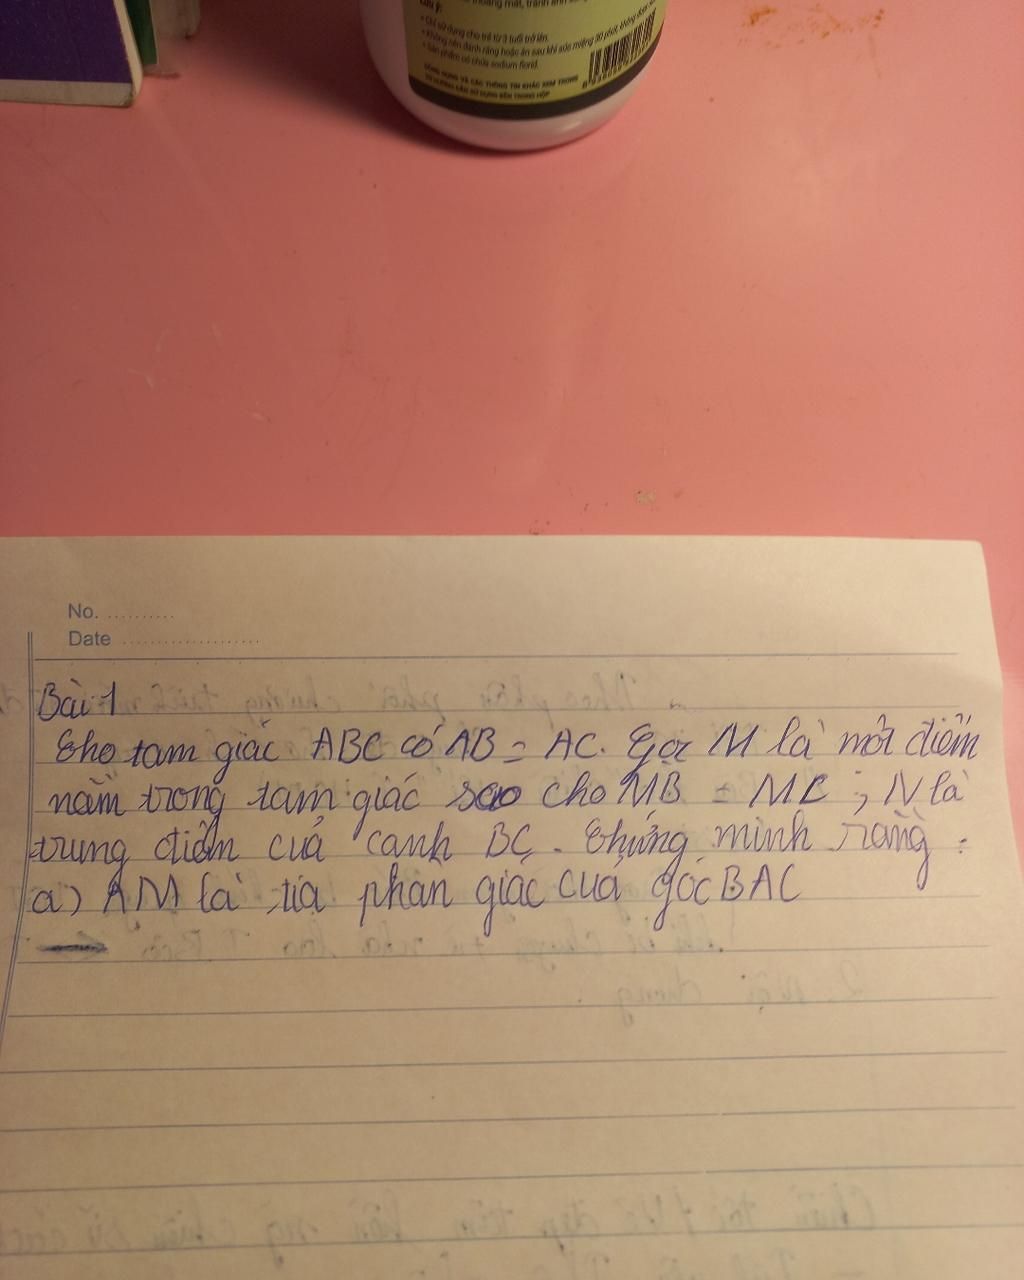 Lưu ý:
• Chỉ sử dụng cho trẻ từ 3 tuổi trở lên.
• Không nên đánh răng hoặc ăn sau khi súc miệng 30 phút, không được
• Sản phẩm có chứa sodium florid.
No. ..........
Date ....................
Bài 1
Cho tam giác ABC có AB = AC. Gọi M là một điểm
nằm trong tam giác sao cho MB = MC ; N là
trung điểm của cạnh BC. Chứng minh rằng :
a) AM là tia phân giác của góc BAC